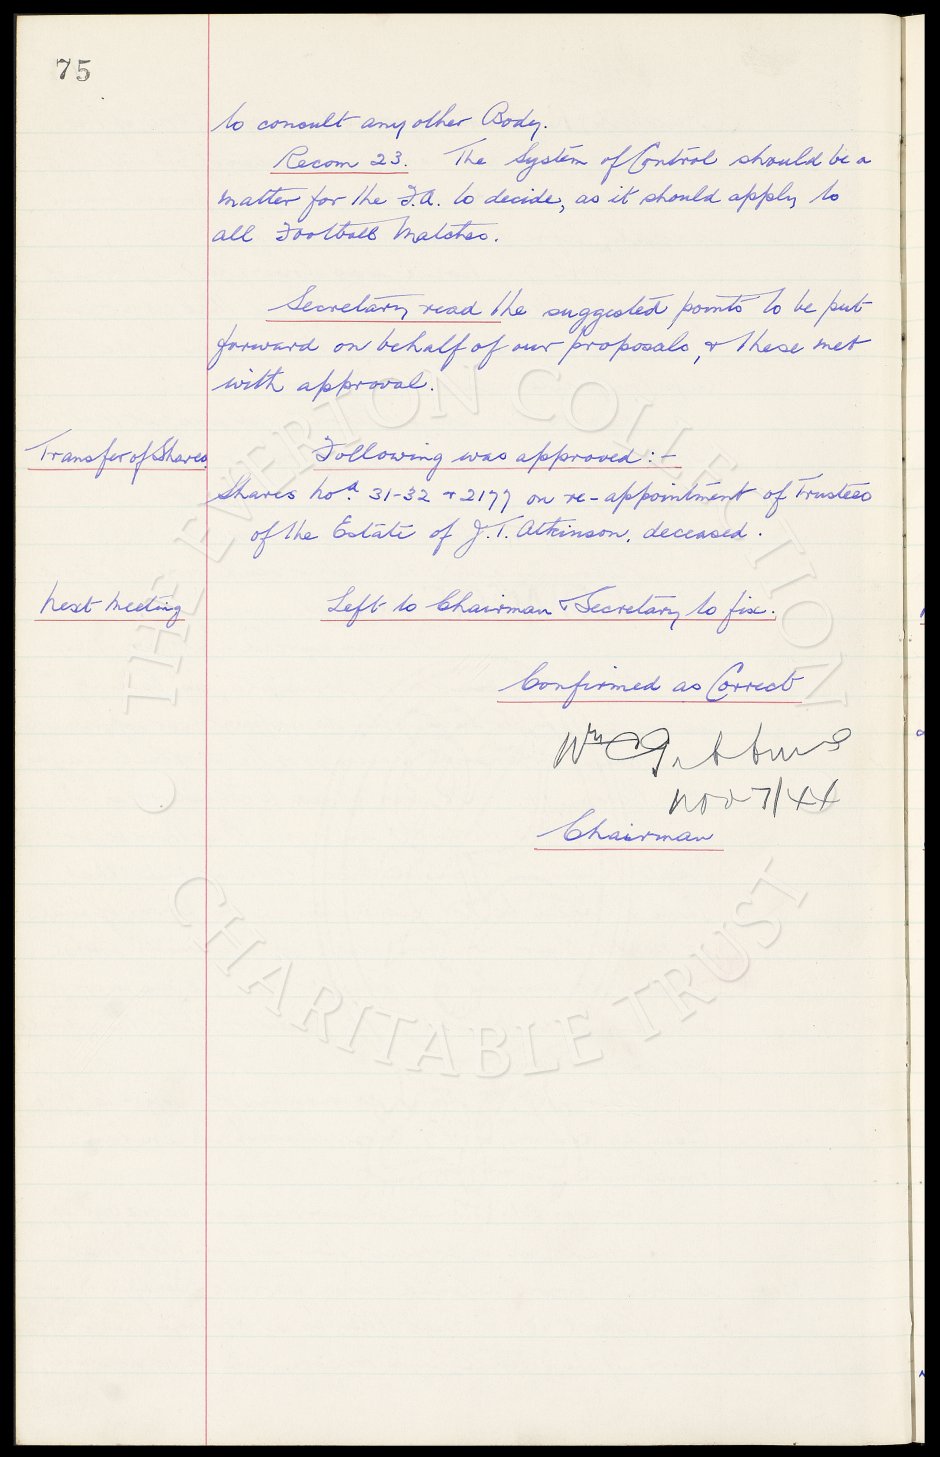 75
to consult any other Body.
Recom 23. The System of Control should be a
matter for the F.A. to decide, as it should apply to
all Football Matches.
Secretary read the suggested points to be put
forward on behalf of our proposals, & these met
with approval.
Transfer of Shares Following was approved:-
Shares Nos. 31-32 & 2177 on re-appointment of Trustees
of the Estate of J.T. Atkinson, deceased.
Next Meeting Left to Chairman & Secretary to fix.
Confirmed as Correct
Wm C Gibbins
Nov 7/44
Chairman
THE EVERTON COLLECTION
CHARITABLE TRUST